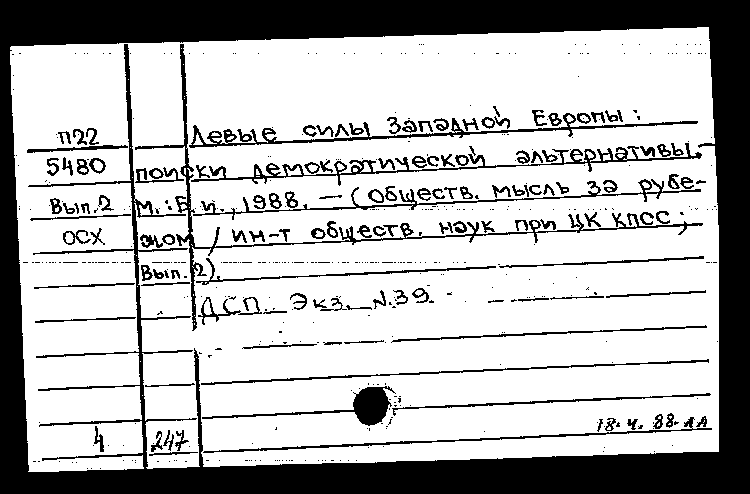 П22 Левые силы Западной Европы:
5480 поиски демократической альтернативы.-
Вып.2 М.: Б.и., 1988. — (Обществ. мысль за рубе-
ОСХ жом / Ин-т обществ. наук при ЦК КПСС;
Вып. 2).
ДСП. Экз. N.39
4 247